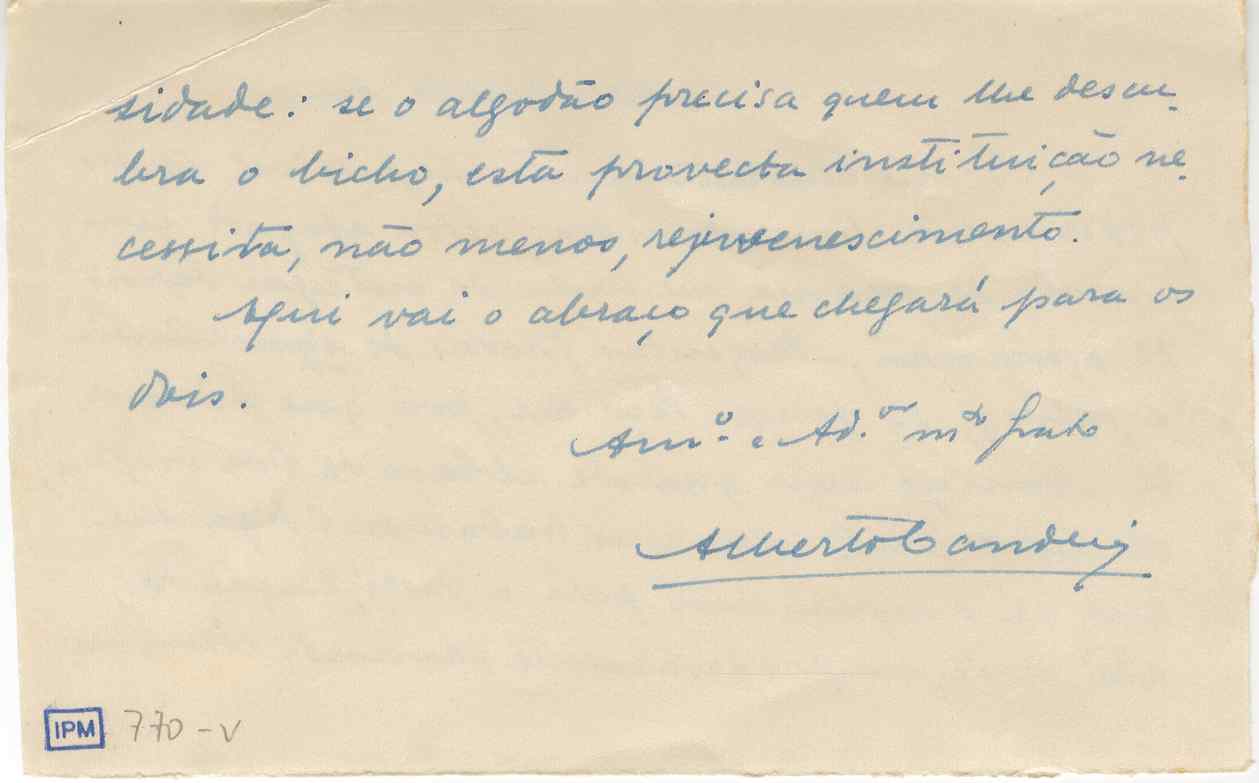 sidade: se o algodão precisa quem lhe descu-
bra o bicho, esta provecta instituição ne-
cessita, não menos, rejuvenescimento.
Aqui vai o abraço que chegará para os
dois.
Amº. e Ad.ºʳ mᵗᵒ grato
Alberto Candeias
IPM 770-V